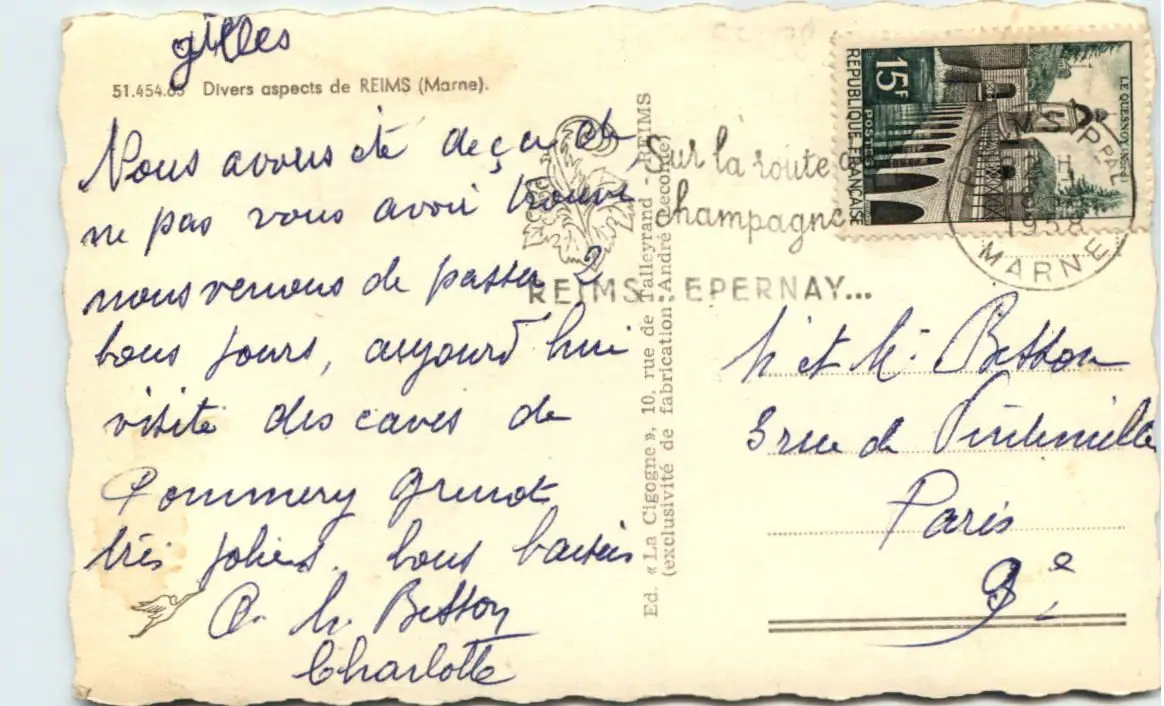 gilles
51.454.65 Divers aspects de REIMS (Marne).
Nous avons été deçu de
ne pas vous avoir trouvé
nous venons de passer 2
bons jours, aujourd'hui
visite des caves de
Pommery Grenot
très jolies. bons baisers
C. h. Besson
Charlotte
Ed. « La Cigogne », 10, rue de Talleyrand - REIMS
(exclusivité de fabrication André Leconte)
Sur la route
champagne
REIMS. EPERNAY...
REPUBLIQUE FRANCAISE
POSTES
15F
LE QUESNOY (Nord)
REIMS PPAL
1958
MARNE
M et M. Besson
3 rue de
Paris
9e